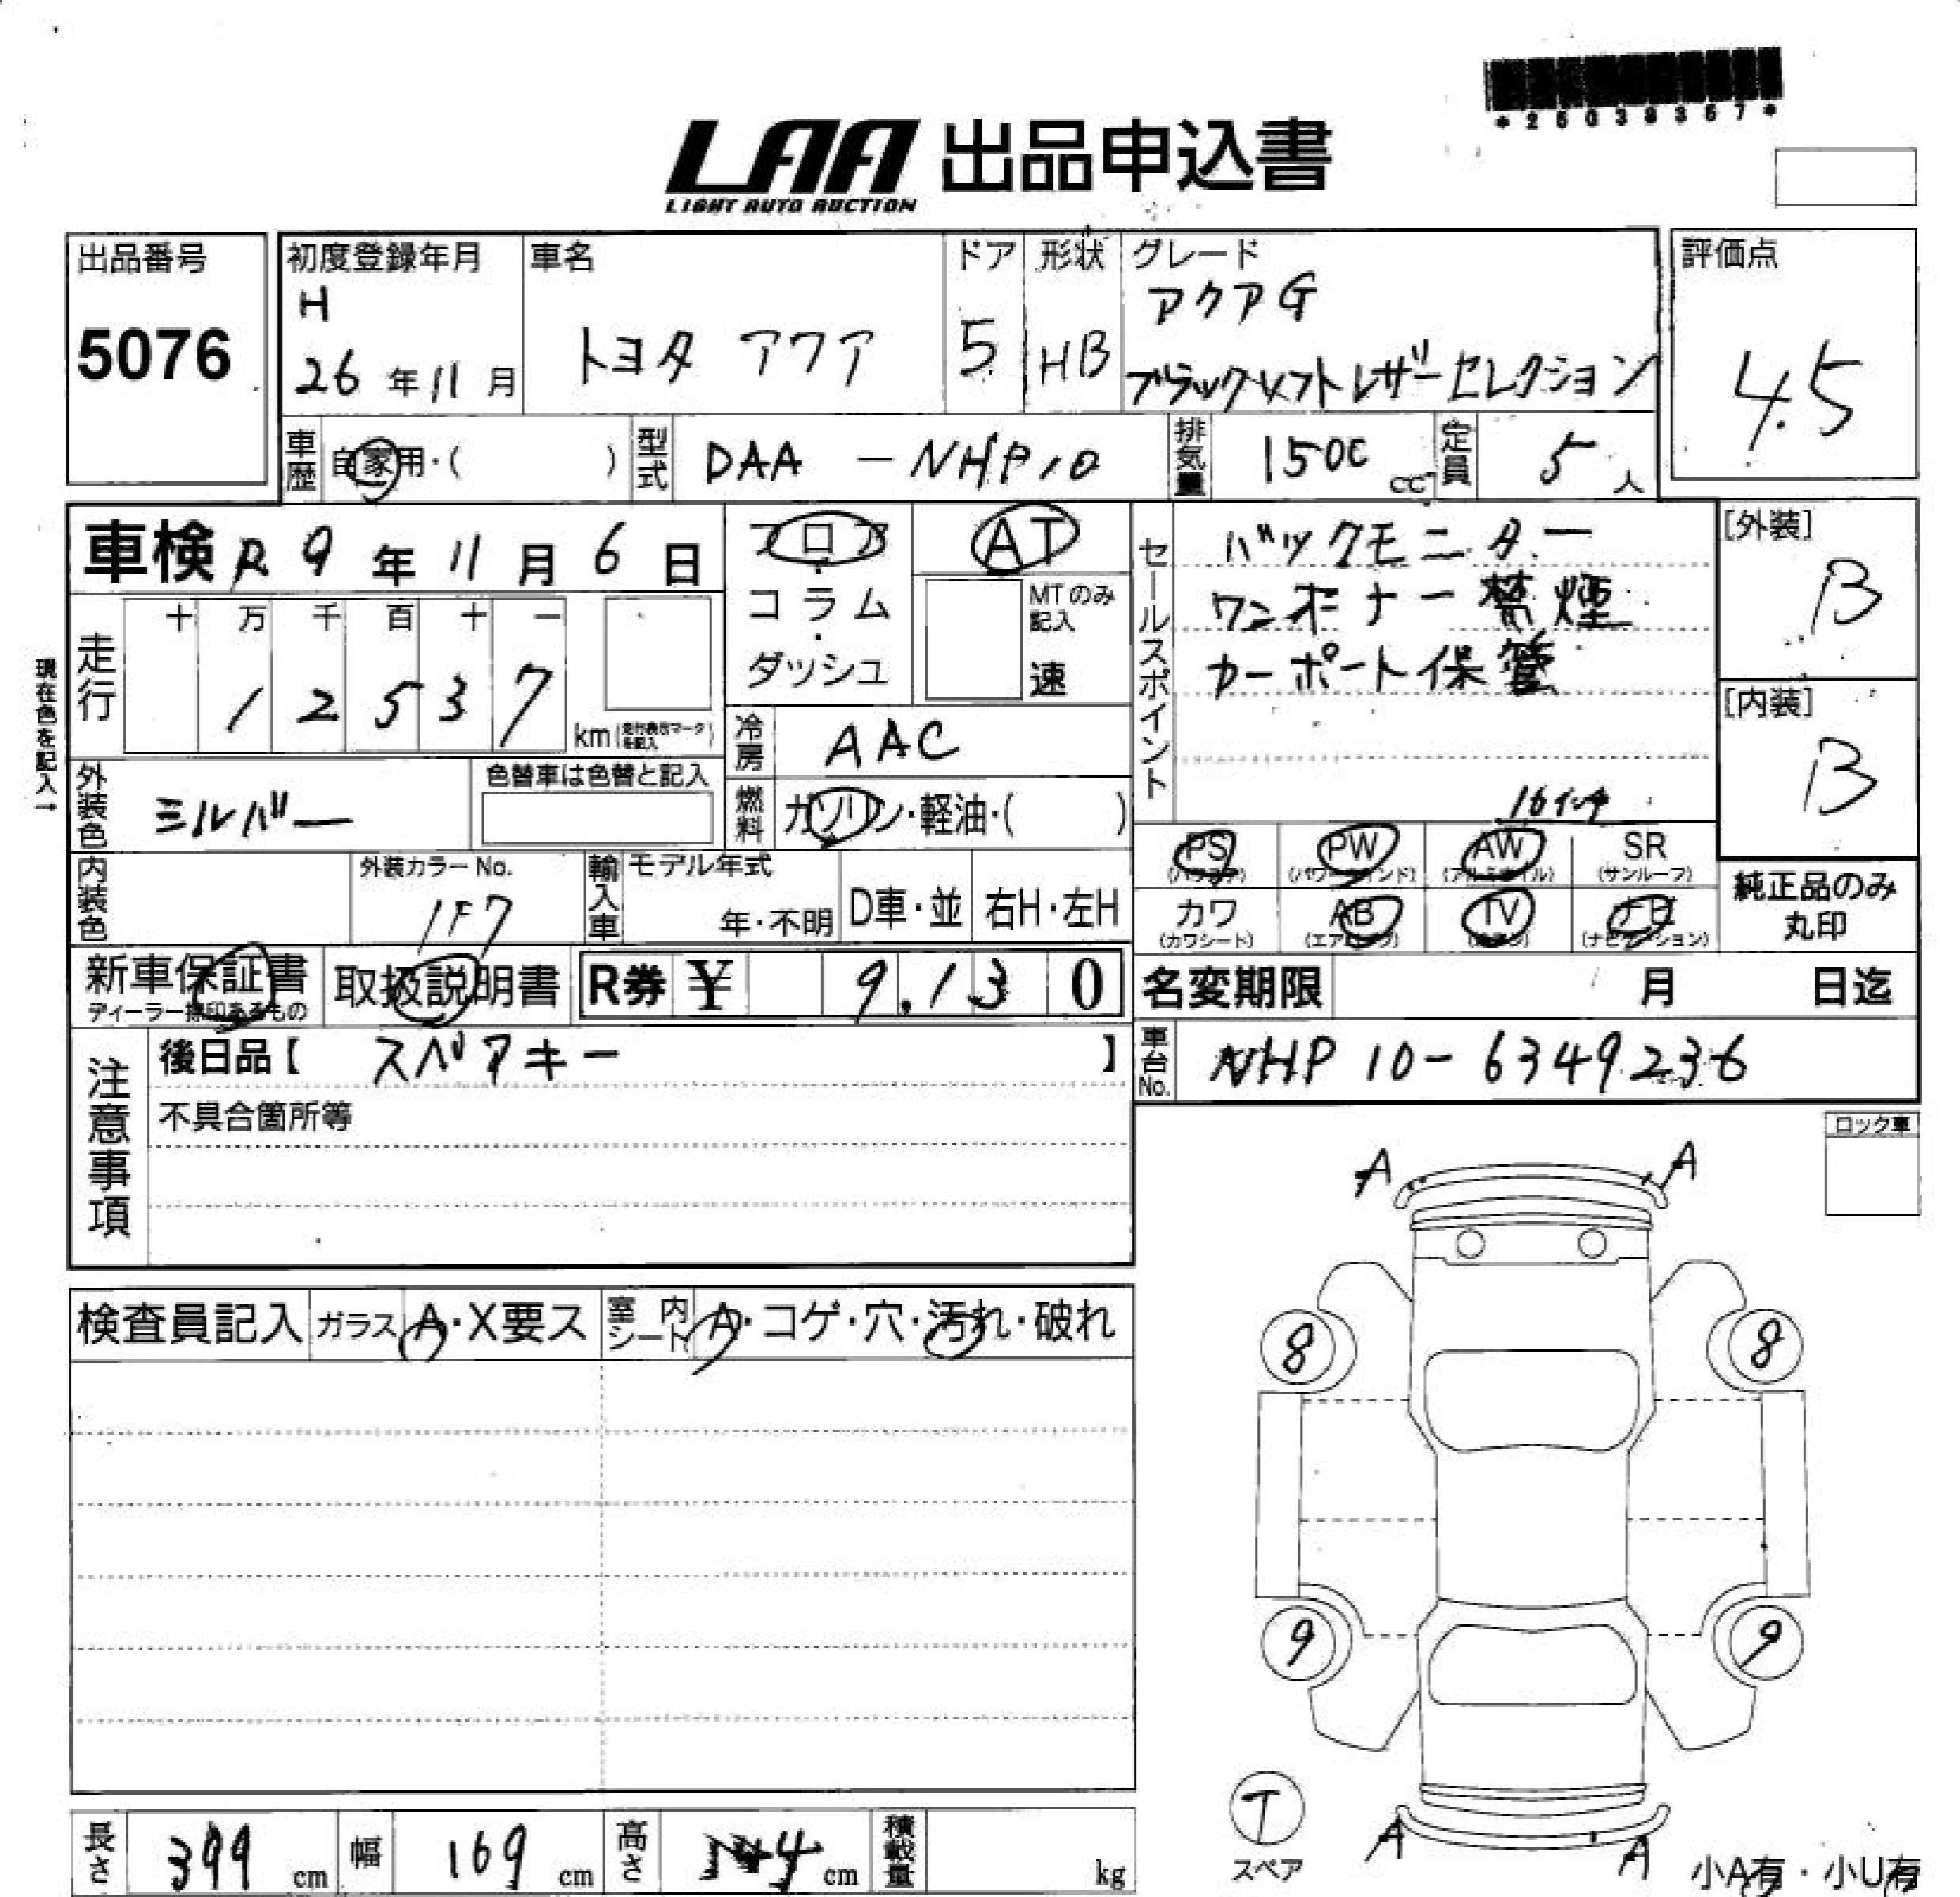 *25039357*
LAA 出品申込書
LIGHT AUTO AUCTION
出品番号
5076
初度登録年月
H
26 年 11 月
車名
トヨタ アクア
ドア
5
形状
HB
グレード
アクアG
ブラックソフトレザーセレクション
評価点
4.5
車歴
自家用・( )
型式
DAA - NHP10
排気量
1500 cc
定員
5 人
車検 R 9 年 11 月 6 日
フロア・コラム・ダッシュ
AT
MTのみ記入
速
セールスポイント
バックモニター
ワンオーナー禁煙
カーポート保管
16インチ
[外装]
B
[内装]
B
現在色を記入→
走行
十 万 千 百 十 一
1 2 5 3 7
km (走行表示マークを記入)
冷房
AAC
燃料
ガソリン・軽油・( )
外装色
シルバー
色替車は色替と記入
PS
(パワステ)
PW
(パワーウインド)
AW
(アルミホイル)
SR
(サンルーフ)
カワ
(カワシート)
AB
(エアバック)
TV
ナビ
(ナビゲーション)
純正品のみ
丸印
内装色
外装カラーNo.
1F7
輸入車
モデル年式
年・不明
D車・並
右H・左H
新車保証書
ディーラー捺印あるもの
取扱説明書
R券 ¥ 9,13 0
名変期限 月 日迄
注意事項
後日品【 スペアキー 】
不具合箇所等
車台No.
NHP 10-6349236
ロック車
A A
検査員記入
ガラス A・X要ス
室内シート A・コゲ・穴・汚れ・破れ
8 8
9 9
T
スペア
A A
小A有・小U有
長さ 399 cm
幅 169 cm
高さ 144 cm
積載量 kg